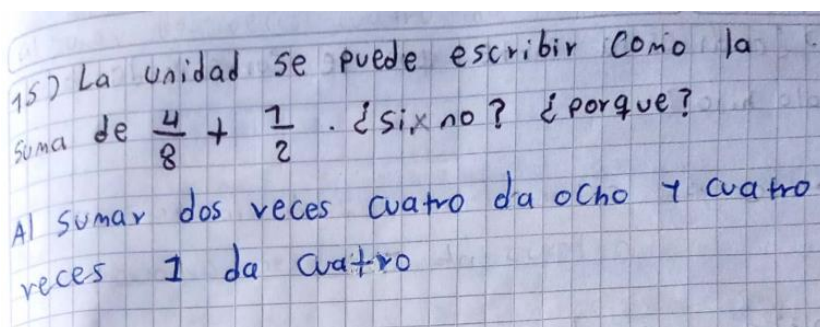 15) La unidad se puede escribir como la
suma de 4/8 + 1/2 . ¿six no? ¿porque?
Al sumar dos veces cuatro da ocho y cuatro
veces 1 da cuatro